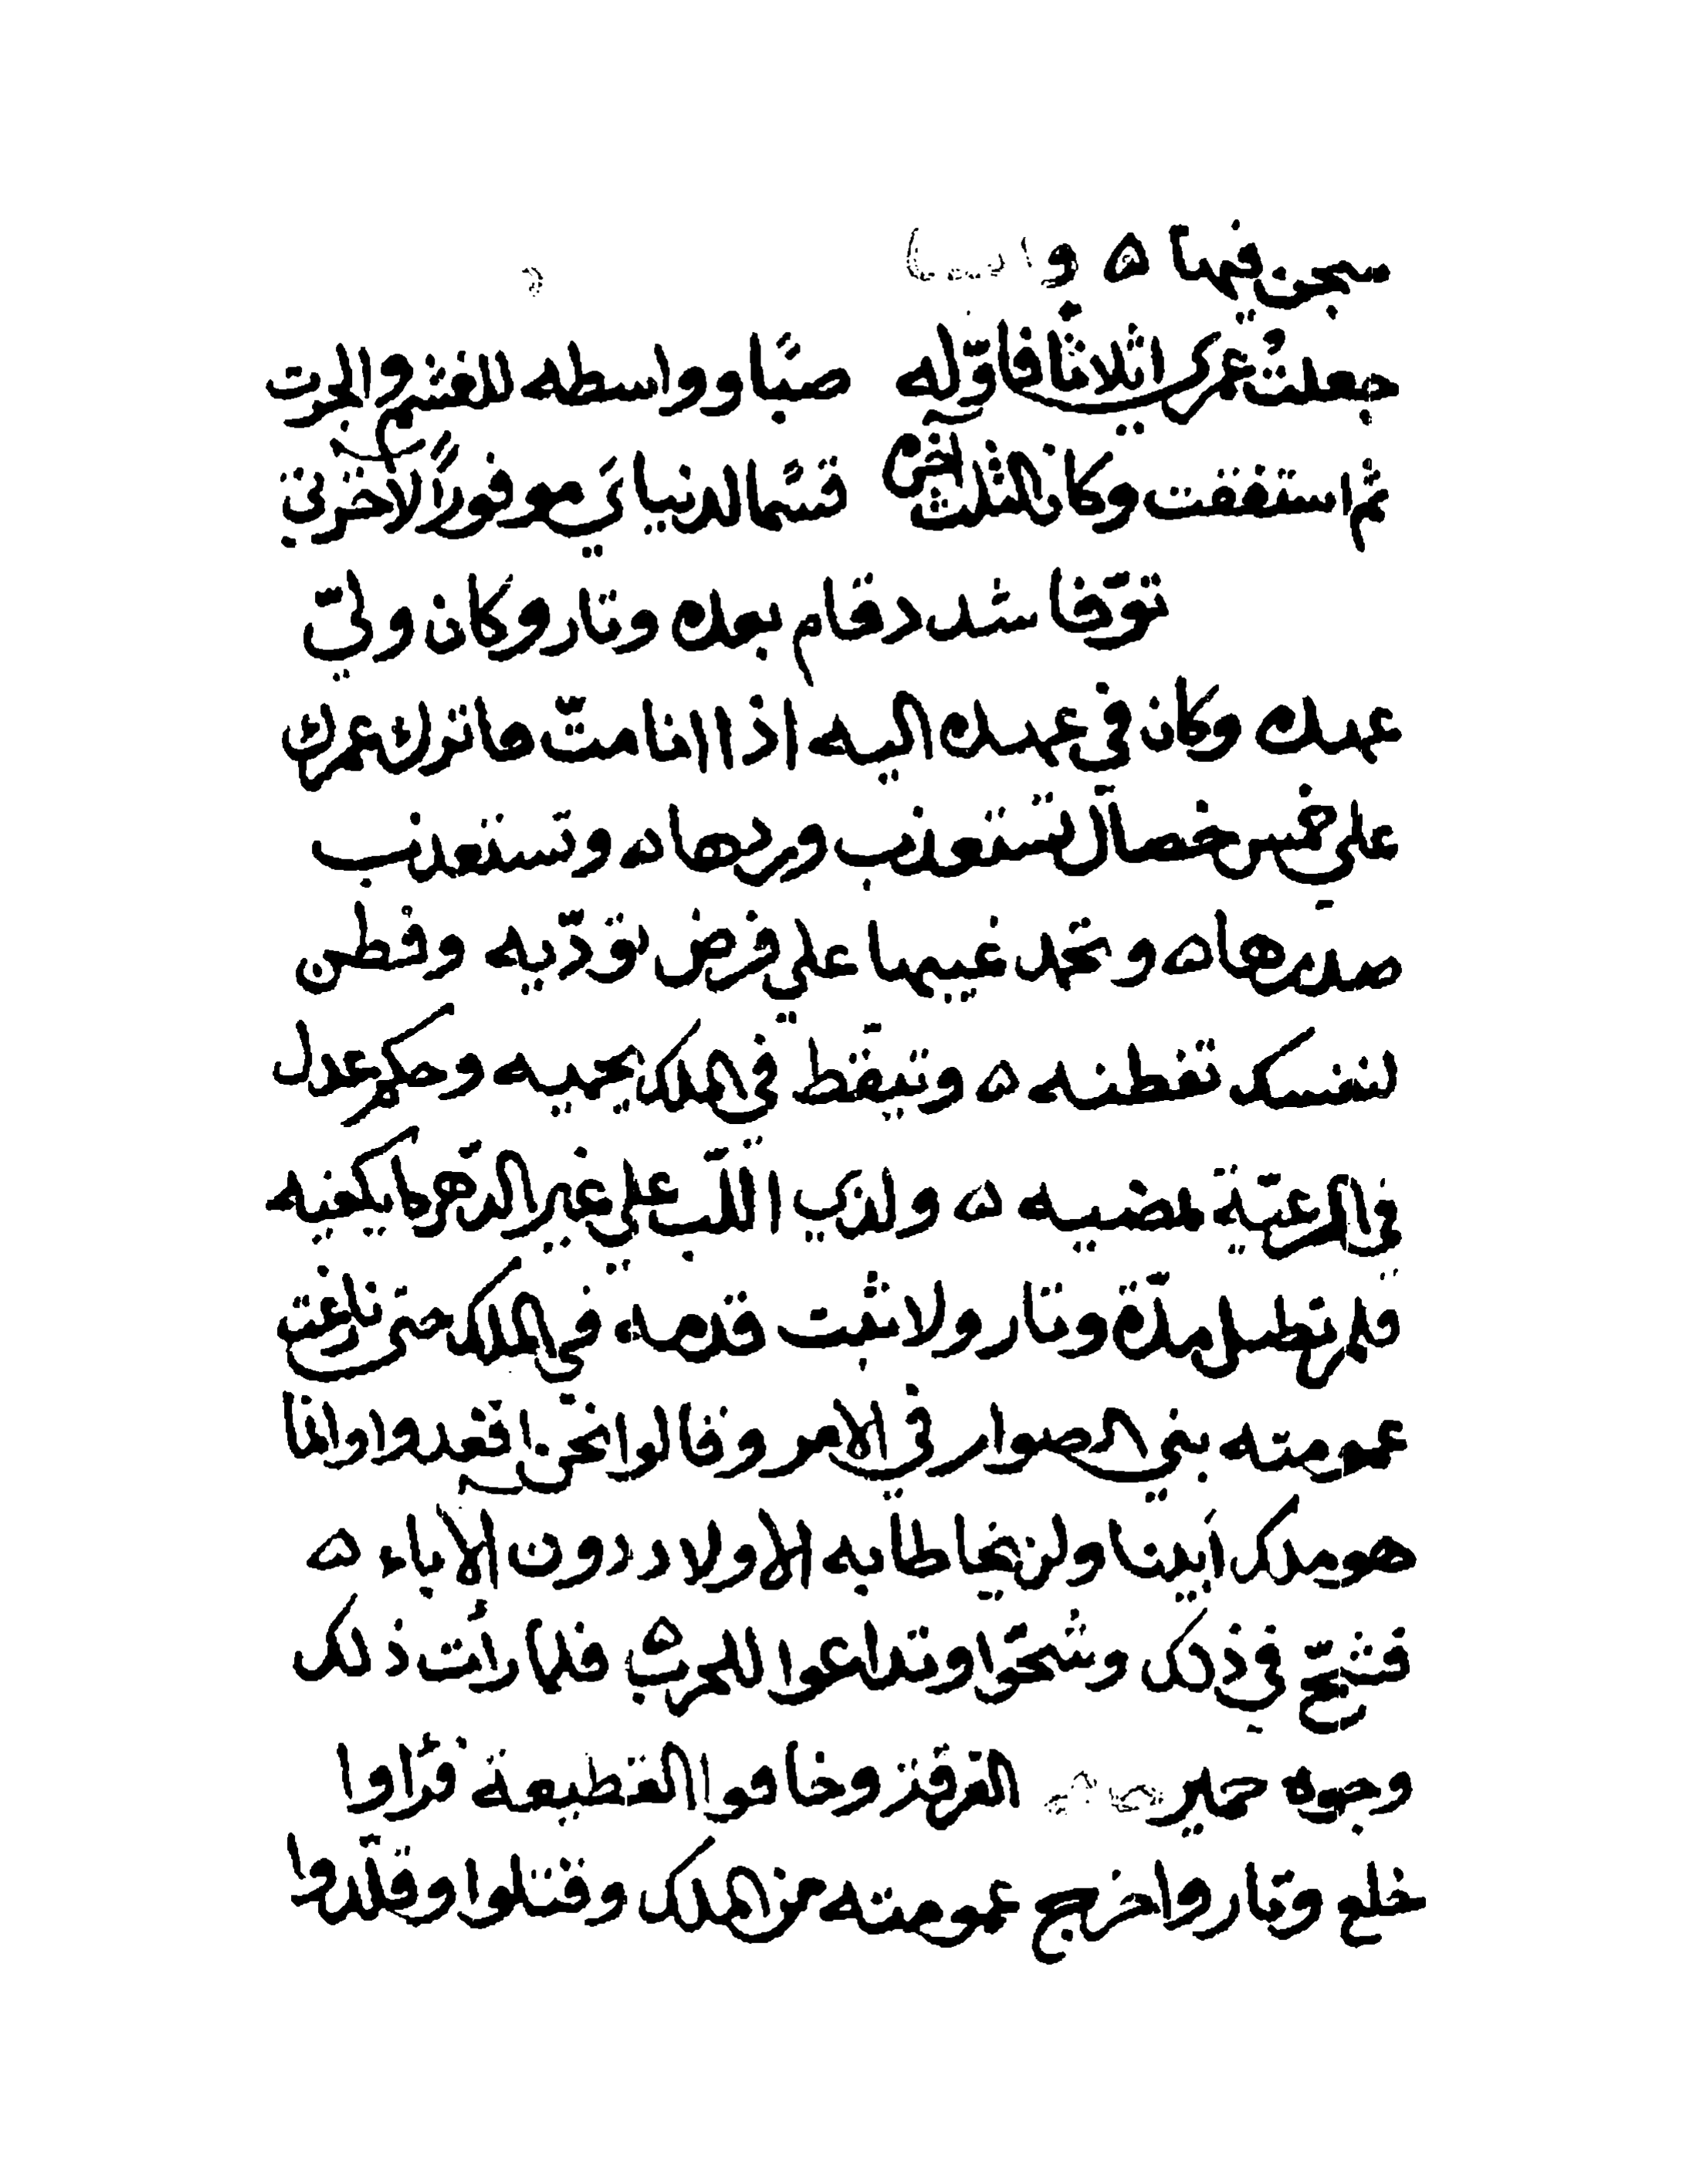 سجن فيها ه و
جعلتُ عمري اثلاثًا فاوّله صبًا وواسطه للغشم والحرت
ثم استفقت وكان الثلث اخره قسّما لدنياي موفورًا لاخرتي
توّفا شدد فقام بعده وتار وكان وليّ
عهده وكان في عهده اليه اذا انا متّ فاترك عمرك
على خمس خصال تستعذب وردها ه وتستعذب
صدرها ه وتحمد غبها على فرض تؤدّيه وفطن
لنفسك تفطنه ه وتيقظ في الملك يحميه وحكم عدل
في الرعيّة تمضيه ه ولذي اللّب على غير الدهر ما يكفيه
فلم تطل مدّة وتار ولا ثبت قدمه في الملك حتى نازعته
عمومته بني الصوار في الامر وقالوا نحن اقعد واوانما
هو ملك أبينا ولن يخاطا به الاولاد دون الاباء ه
فشحّ في ذلك وشحّوا وتداعوا للحرب ه فلما رأت ذلك
وجوه حمير الفرقة وخافوا القطيعة فرّاوا
خلع وتار واخرج عمومته من الملك وقتلوا وقلّدوا